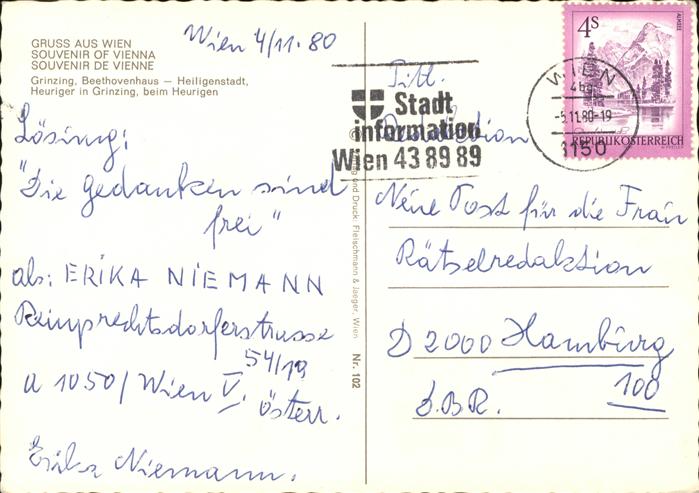 Wien 4/11.80
GRUSS AUS WIEN
SOUVENIR OF VIENNA
SOUVENIR DE VIENNE
Grinzing, Beethovenhaus — Heiligenstadt,
Heuriger in Grinzing, beim Heurigen
Lösung:
"Die gedanken sind
frei"
als: ERIKA NIEMANN
Reinprechtsdorferstrasse
54/19
A 1050/Wien V.
österr.
Erika Niemann.
und Druck: Fleischmann & Jaeger, Wien
Nr. 102
4S
ALMSEE
REPUBLIK ÖSTERREICH
WIEN
-5.11.80-19
1150
Stadt
information
Wien 43 89 89
Titl.
Redaktion
Neue Post für die Frau
Rätselredaktion
D 2000 Hamburg
100
D.B.R.